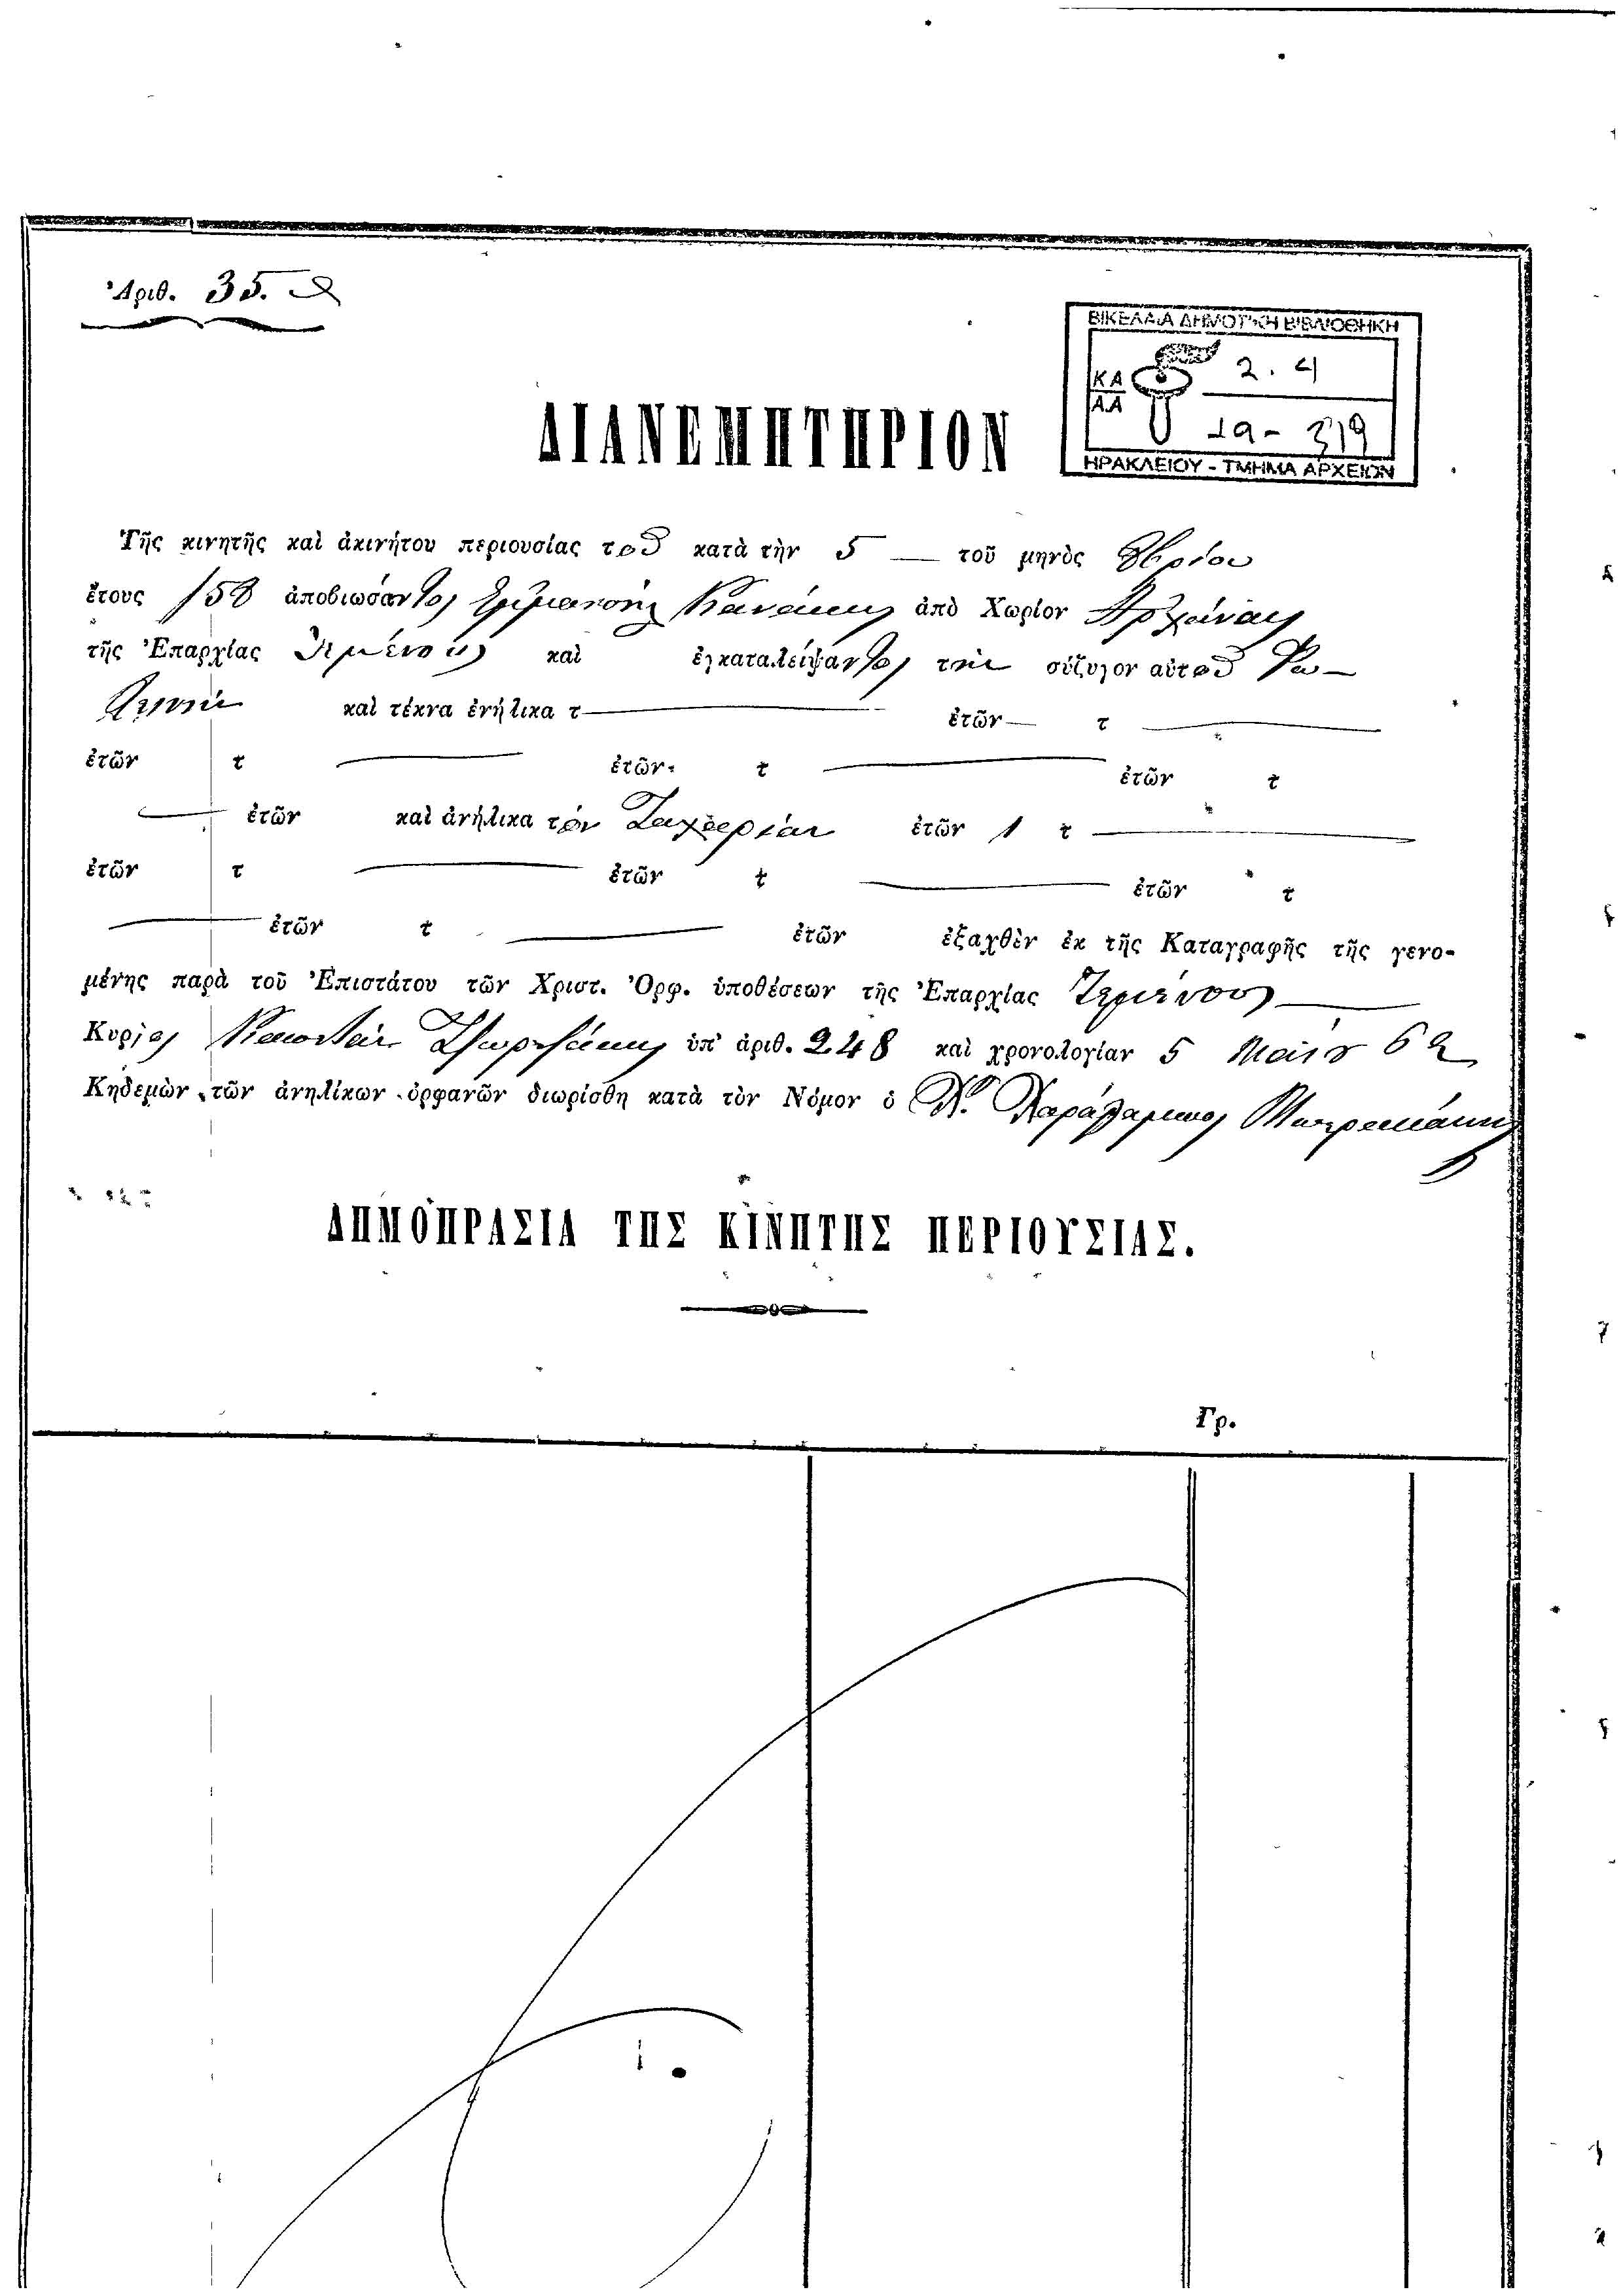 Ἀριθ. 35.
ΒΙΚΕΛΑΙΑ ΔΗΜΟΤΙΚΗ ΒΙΒΛΙΟΘΗΚΗ
ΚΑ
ΑΑ
2.4
19-319
ΗΡΑΚΛΕΙΟΥ - ΤΜΗΜΑ ΑΡΧΕΙΩΝ
ΔΙΑΝΕΜΗΤΗΡΙΟΝ
Τῆς κινητῆς καὶ ἀκινήτου περιουσίας τοῦ κατὰ τὴν 5 — τοῦ μηνὸς
ἔτους 158 ἀποβιώσαντος Ἐμμανουὴλ Κανάκη ἀπὸ Χωρίον Ἀρχάναις
τῆς Ἐπαρχίας Τεμένους καὶ ἐγκαταλείψαντος τὴν σύζυγον αὐτοῦ
καὶ τέκνα ἐνήλικα τ— ἐτῶν — τ —
ἐτῶν τ — ἐτῶν τ — ἐτῶν τ
— ἐτῶν καὶ ἀνήλικα τὸν Ζαχαρίαν ἐτῶν 1 τ —
ἐτῶν τ — ἐτῶν τ — ἐτῶν τ
— ἐτῶν τ — ἐτῶν ἐξαχθὲν ἐκ τῆς Καταγραφῆς τῆς γενο-
μένης παρὰ τοῦ Ἐπιστάτου τῶν Χριστ. Ὀρφ. ὑποθέσεων τῆς Ἐπαρχίας Τεμένους —
Κυρίου ὑπ' ἀριθ. 248 καὶ χρονολογίαν 5 Μαΐου 62
Κηδεμὼν τῶν ἀνηλίκων ὀρφανῶν διωρίσθη κατὰ τὸν Νόμον ὁ Κ. Χαράλαμπος
ΔΗΜΟΠΡΑΣΙΑ ΤΗΣ ΚΙΝΗΤΗΣ ΠΕΡΙΟΥΣΙΑΣ.
Γρ.